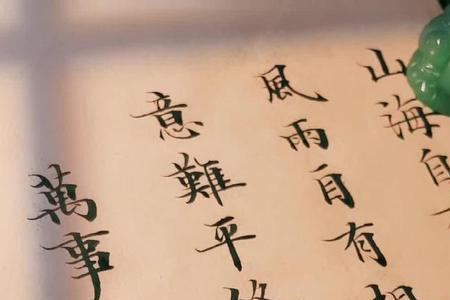 山海自
風雨自有
意難平
萬事